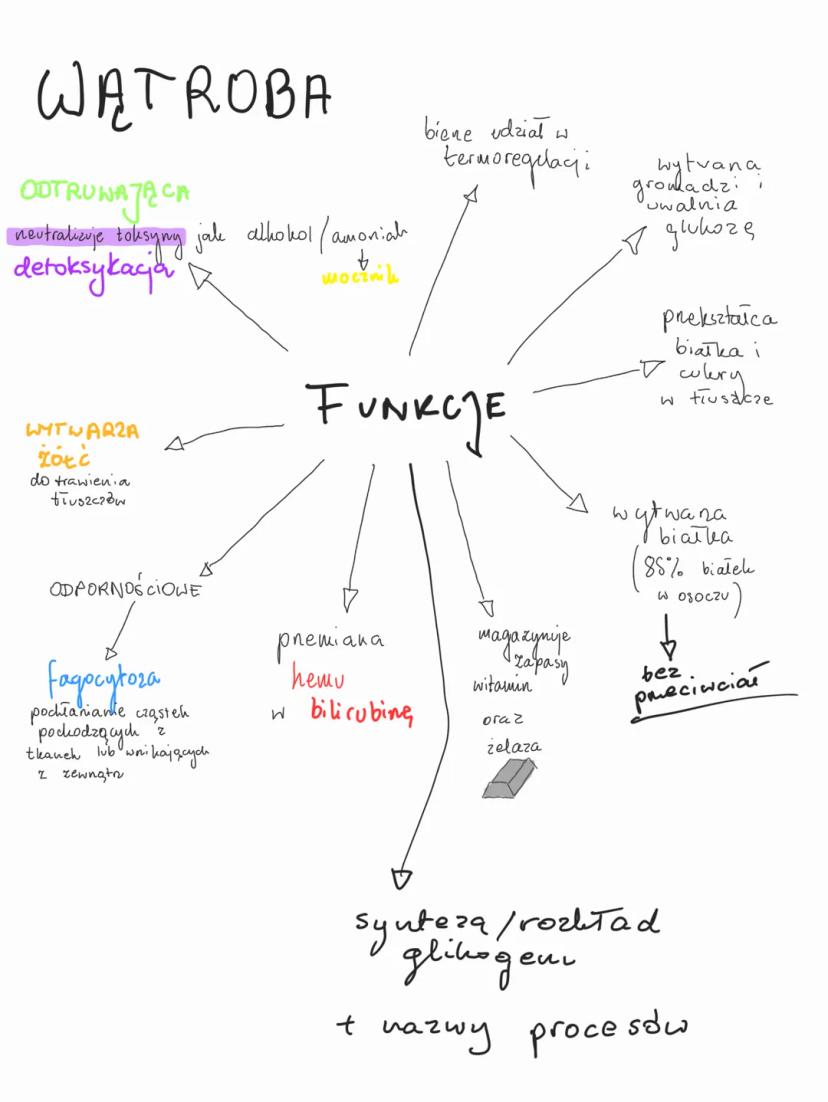 WĄTROBA
ODTRUWAJĄCA
neutralizuje toksyny jak alkohol / amoniak
mocznik
detoksykacja
bierze udział w
termoregulacji
wytwarza
gromadzi i
uwalnia
glukozę
przekształca
białka i
cukry
w tłuszcze
FUNKCJE
WYTWARZA
ŻÓŁĆ
do trawienia
tłuszczów
wytwarza
białka
(85% białek
w osoczu)
bez
przeciwciał
ODPORNOŚCIOWE
fagocytoza
pochłanianie cząstek
pochodzących z
tkanek lub wnikających
z zewnątrz
przemiana
hemu
w bilirubinę
magazynuje
zapasy
witamin
oraz
żelaza
synteza / rozkład
glikogenu
+ nazwy procesów